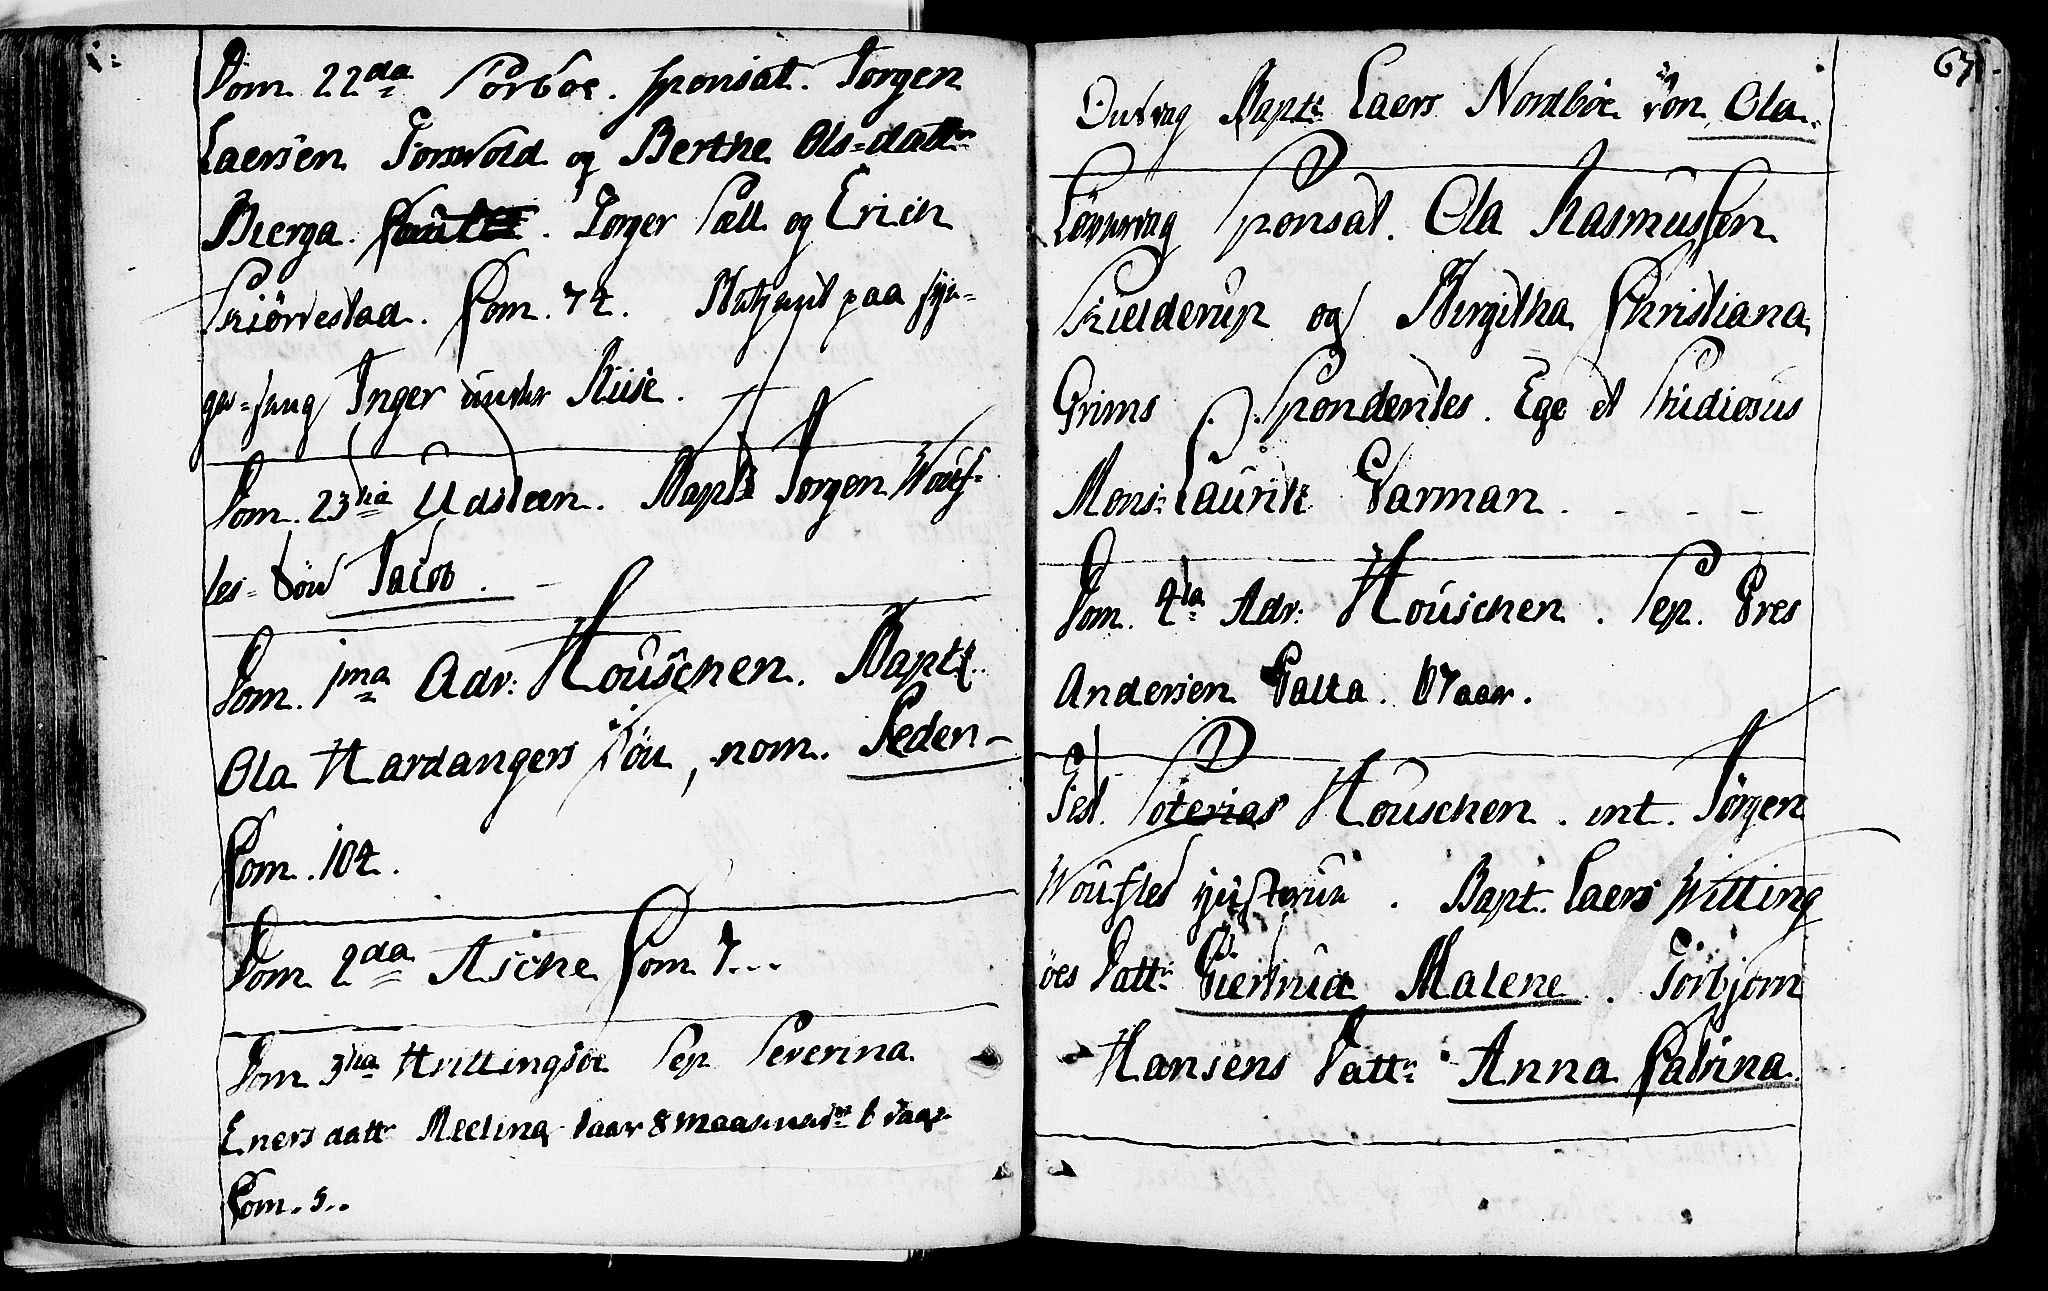 Dom. 22da Sørboe. sponsat. Jorgen
Laersen Torsvold og Berthe Ols=dattr
Bierga. Torger Sæll og Erich
Skiørrestad. Com. 74. paa
Inger Riise.
Dom. 23tia Udsteen. Baptt Jorgen Wouf-
les- søn Jacob.
Dom. 1ma Adv: Houschen. Baptt.
Ola Hardangers søn, nom. Peder-
Com. 104.
Dom 2da Aschе Com 7...
Dom 3tia Huittingsøe Sep Severina
Eners dattr Meeling 1 aar 8 maaneder
Com. 5..
67.
Onsdag Baptt Laers Nordbøe søn, Ola.
Løverdag Sponsat. Ola Rasmussen
Kielderup og Birgitha Christiana
Grims Spondentes. Ege et Studiosus
Monsr Lauritz Garman.
Dom. 4ta Adv: Houschen. Sep. Gres
Andersen Galta. 67 aar.
Fest. Soterias Houschen. int. Jørgen
Woufles hustrue. Bapt. Laers Witting
øes Dattr Giertrud Malene. Torbjørn
Hansens Dattr Anna Catrina.